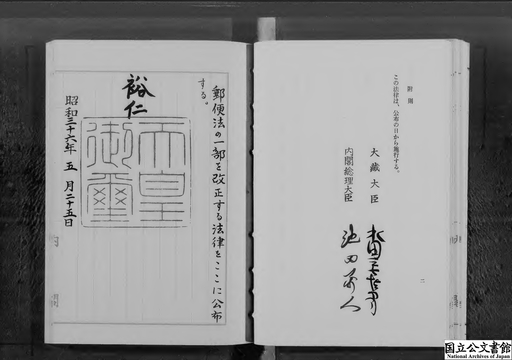 附則
この法律は、公布の日から施行する。
大藏大臣 水田三喜男
内閣総理大臣 池田勇人
二
郵便法の一部を改正する法律をここに公布
する。
裕仁
天皇
御璽
昭和三十六年五月二十五日
国立公文書館
National Archives of Japan